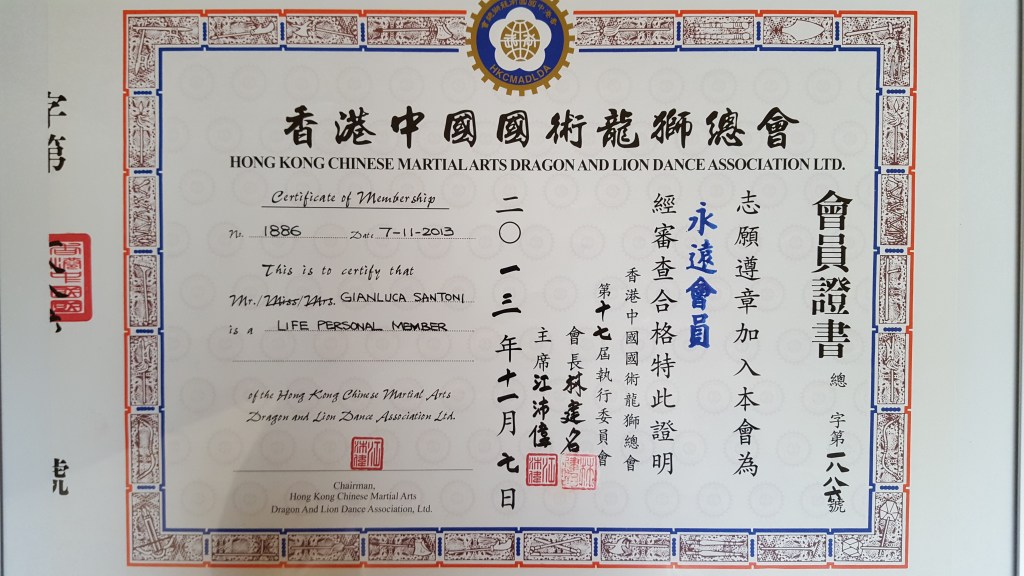 香港中國國術龍獅總會
HONG KONG CHINESE MARTIAL ARTS DRAGON AND LION DANCE ASSOCIATION LTD.
HKCMADLDA
會員證書
總字第一八八六號
志願遵章加入本會為
永遠會員
經審查合格特此證明
香港中國國術龍獅總會
第十七屆執行委員會
會長林建名
主席江沛偉
二〇一三年十一月七日
Certificate of Membership
No. 1886 Date 7-11-2013
This is to certify that
Mr./Miss/Mrs. GIANLUCA SANTONI
is a LIFE PERSONAL MEMBER
of the Hong Kong Chinese Martial Arts
Dragon and Lion Dance Association Ltd.
江沛偉
Chairman,
Hong Kong Chinese Martial Arts
Dragon And Lion Dance Association, Ltd.
字第
號